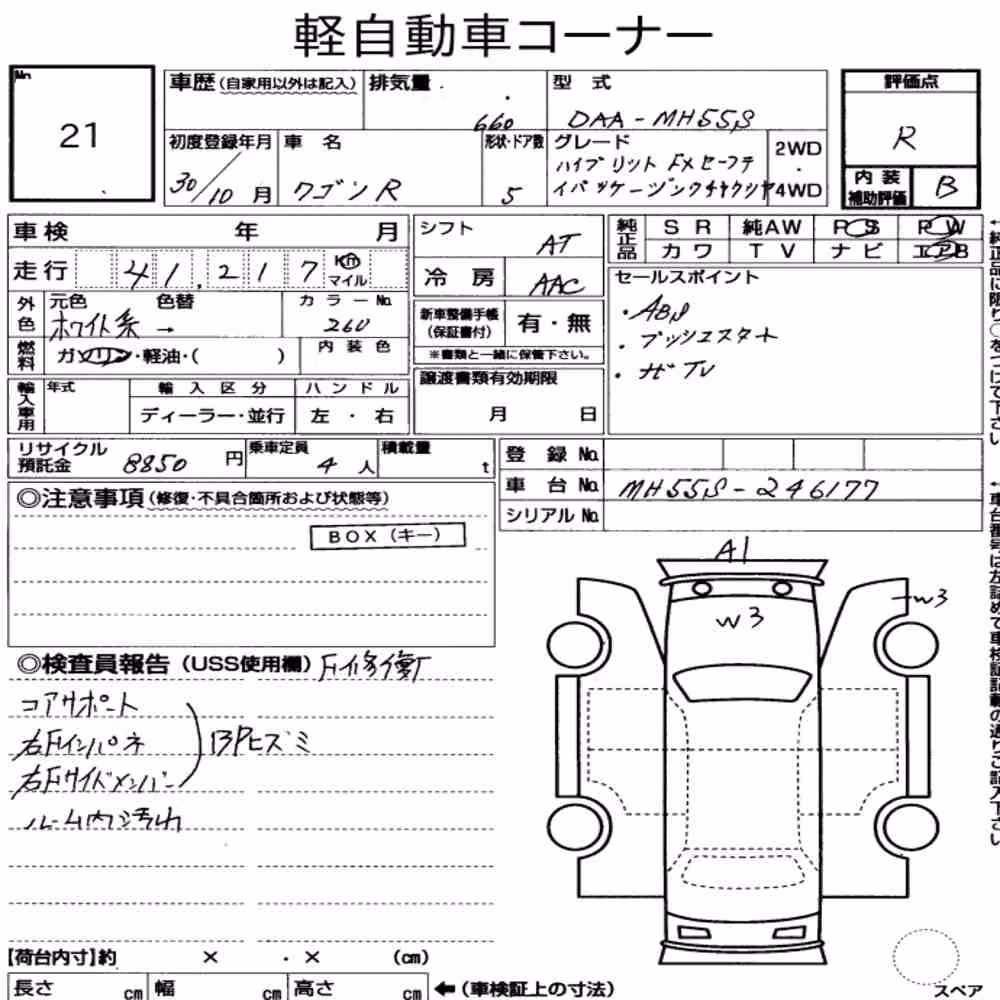 軽自動車コーナー
No.
21
車歴(自家用以外は記入)
排気量
660
型 式
DAA-MH55S
評価点
R
初度登録年月
30/10月
車 名
ワゴンR
形状・ドア数
5
グレード
ハイブリット FXセーフテ
イパッケージ
2WD
・
4WD
内 装
補助評価
B
車検 年 月
走行 41,217 Km マイル
シフト
AT
冷 房
AAC
純正品
SR 純AW PS PW
カワ TV ナビ エアB
セールスポイント
・ABS
・プッシュスタート
・ナビTV
外色
元色 色替
ホワイト系→
カラーNo.
260
燃料
ガソリン・軽油・( )
内装色
新車整備手帳
(保証書付)
有・無
※書類と一緒に保管下さい。
譲渡書類有効期限
月 日
輸入車用
年式
輸入区分
ディーラー・並行
ハンドル
左・右
リサイクル
預託金
8850円
乗車定員
4人
積載量
t
登録No.
車台No. MH55S-246177
シリアルNo.
◎注意事項(修復・不具合箇所および状態等)
BOX(キー)
◎検査員報告(USS使用欄)
コアサポート
右Fインパネ
右Fサイドメンバー
BPヒズミ
ルーム内汚れ
A1
W3
W3
【荷台内寸】約 × × (cm)
長さ cm 幅 cm 高さ cm ←(車検証上の寸法)
スペア
←純正品に限り○をつけて下さい
←車台番号は左詰めで車検証記載の通りご記入下さい